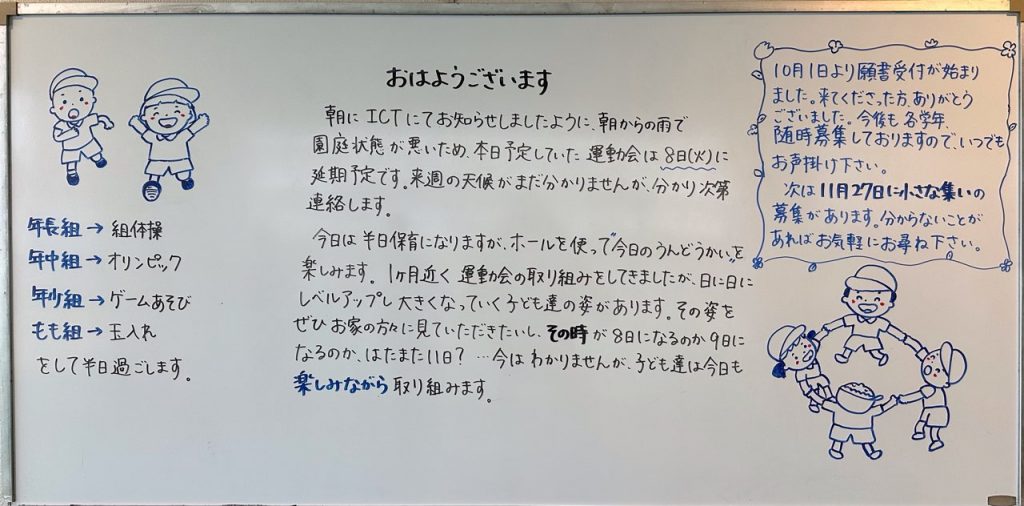 おはようございます
朝にICTにてお知らせしましたように、朝からの雨で
園庭状態が悪いため、本日予定していた運動会は8日(火)に
延期予定です。来週の天候がまだ分かりませんが、分かり次第
連絡します。
今日は半日保育になりますが、ホールを使って"今日のうんどうかい"を
楽しみます。1ヶ月近く運動会の取り組みをしてきましたが、日に日に
レベルアップし大きくなっていく子ども達の姿があります。その姿を
ぜひお家の方々に見ていただきたいし、その時が8日になるのか9日に
なるのか、はたまた11日?…今はわかりませんが、子ども達は今日も
楽しみながら取り組みます。
年長組→組体操
年中組→オリンピック
年少組→ゲームあそび
もも組→玉入れ
をして半日過ごします。
10月1日より願書受付が始まり
ました。来てくださった方、ありがとう
ございました。今後も各学年、
随時募集しておりますので、いつでも
お声掛け下さい。
次は11月27日に小さな集いの
募集があります。分からないことが
あればお気軽にお尋ね下さい。